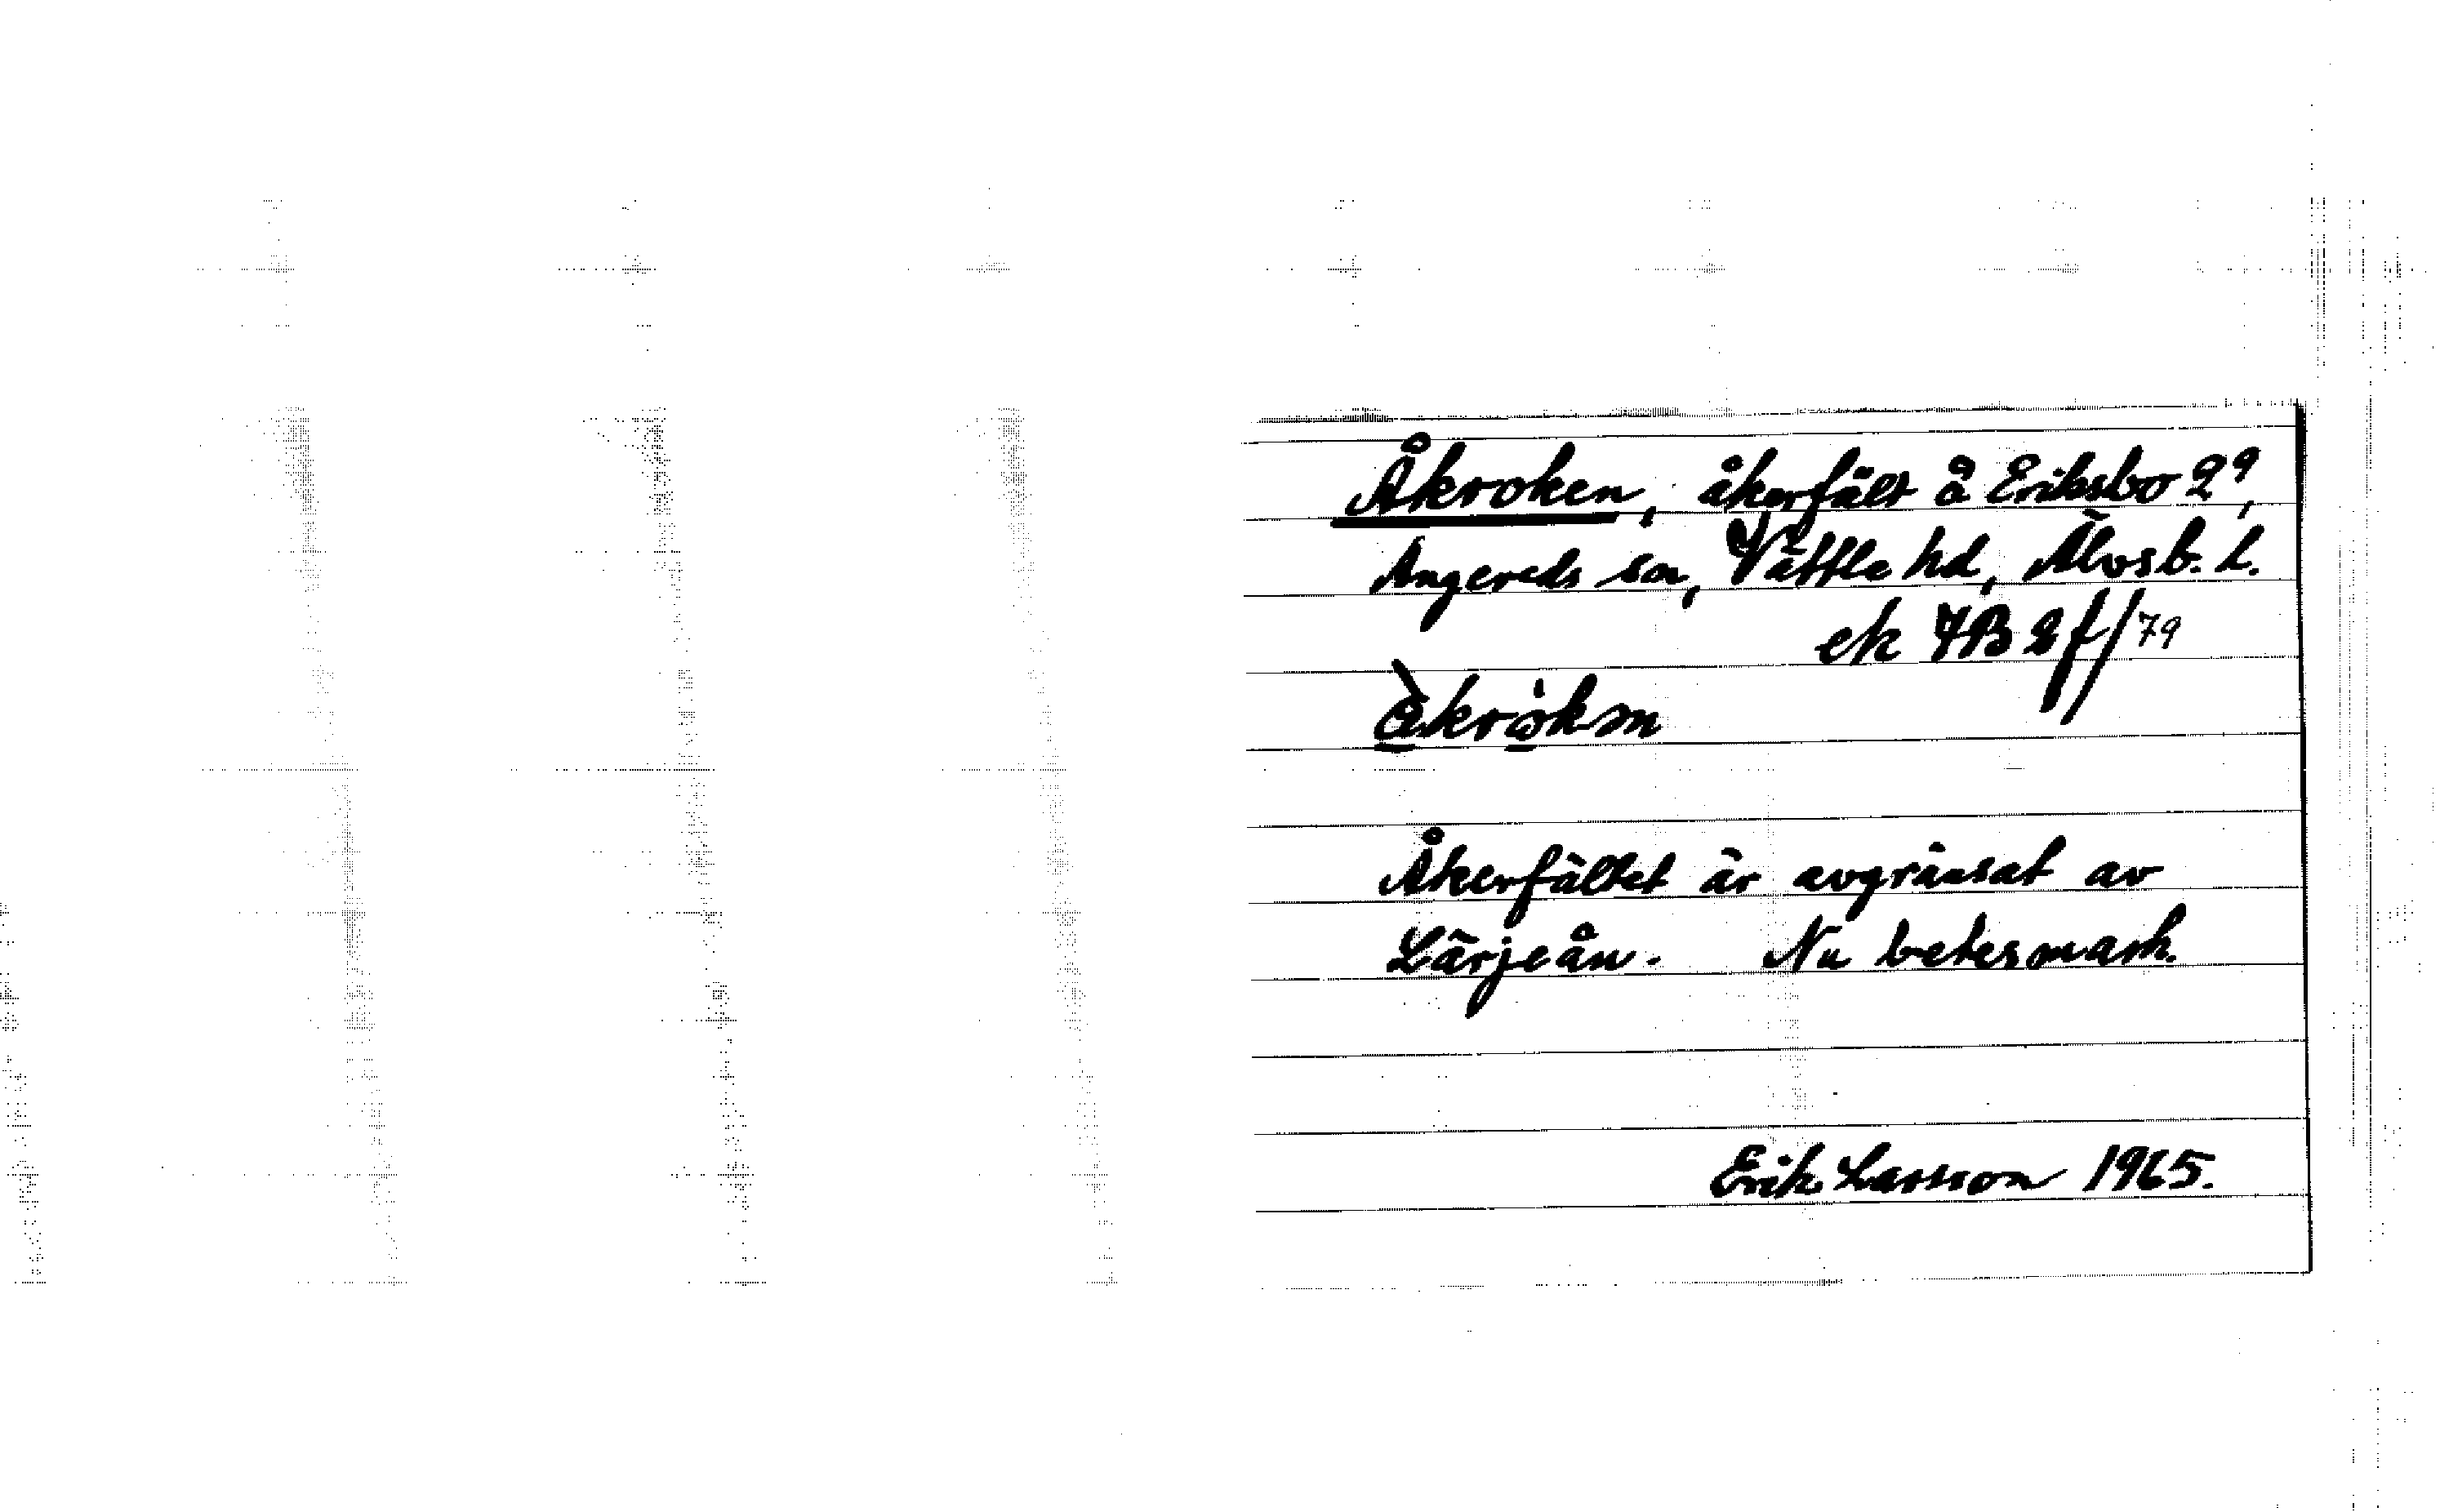 Åkroken, åkerfält å Eriksbo 2⁹,
Angereds sn, Vättle hd, Älvsb. l.
ek 7B 2f/79
å̀krök̇m
Åkerfältet är avgränsat av
Lärjeån. Nu betesmark.
Erik Larsson 1965.